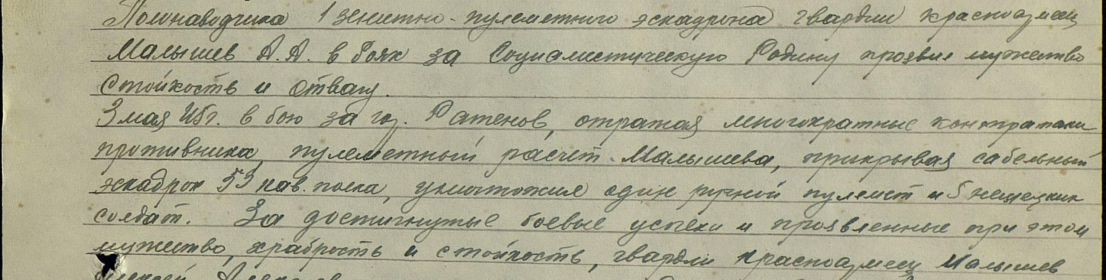 Помонаводчика 1 зенитно-пулеметного эскадрона гвардии красноармеец
Малышев А.А. в боях за Социалистическую Родину проявил мужество
стойкость и отвагу.
3 мая 45г. в бою за гор. Ратенов, отражая многократные контратаки
противника, пулеметный расчет Малышева, прикрывая сабельный
эскадрон 53 кав. полка, уничтожил один ручной пулемет и 5 немецких
солдат. За достигнутые боевые успехи и проявленные при этом
мужество, храбрость и стойкость, гвардии красноармеец Малышев